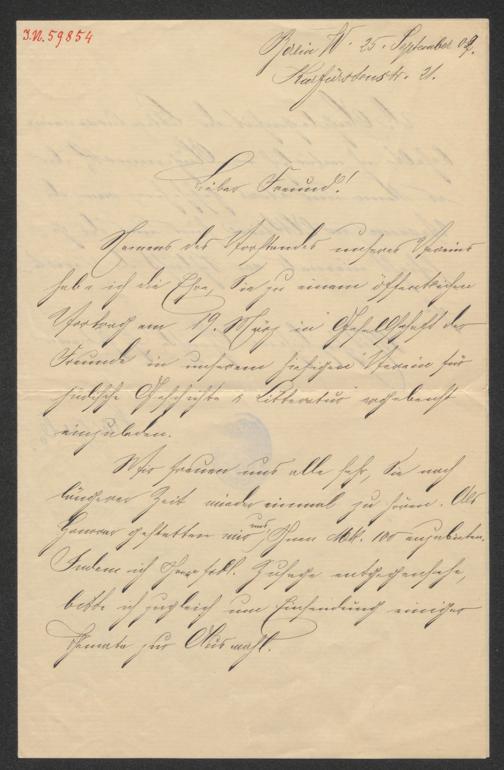 J.N. 59854
Berlin W. 25. September 02.
Kurfürstenstr. 21.
Lieber Freund!
Namens des Vorstandes unseres Vereins
habe ich die Ehre, Sie zu einem öffentlichen
Vortrag am 19. März in Gesellschaft der
Freunde in unserem hiesigen Verein für
jüdische Geschichte & Litteratur ergebenst
einzuladen.
Wir freuen uns alle sehr, Sie nach
längerer Zeit wieder einmal zu hören. Als
Honorar gestatten wir uns, Ihnen Mk. 100 anzubieten.
Indem ich Ihrer Zusage entgegensehe,
bitte ich zugleich um Einsendung einiger
Themata zur Auswahl.